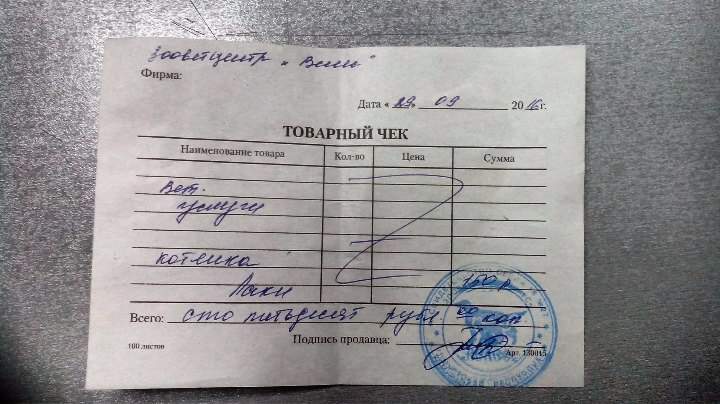 Зооветцентр „
Фирма:
Дата « 29 » 09 2016 г.
ТОВАРНЫЙ ЧЕК
Наименование товара Кол-во Цена Сумма
Вет.
услуги
котенка
Лаки 150 р
Всего: сто пятьдесят рубл 00 коп.
Подпись продавца:
100 листов Арт. 130015